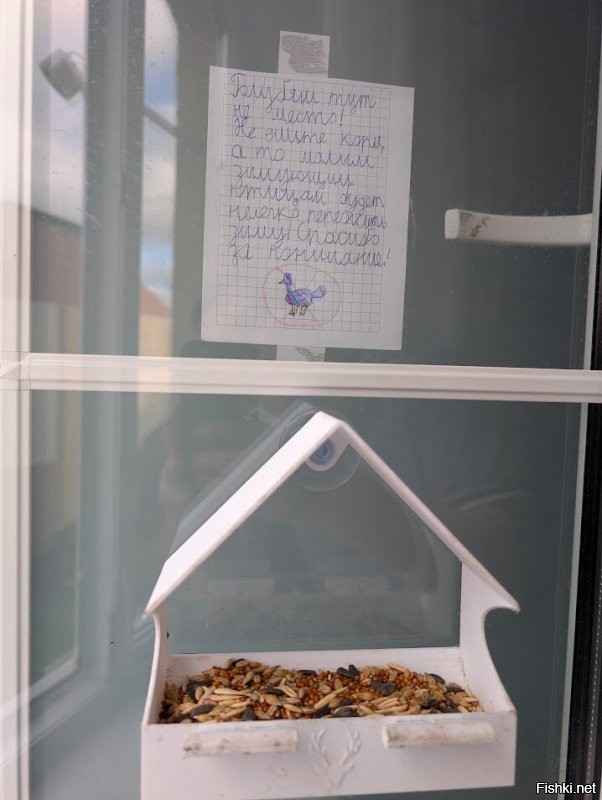 Глубям тут
не место!
Не ешьте корм,
а то малым
зимующим
птицам будет
нелегко пережить
зиму! Спасибо
за понимание!
Fishki.net